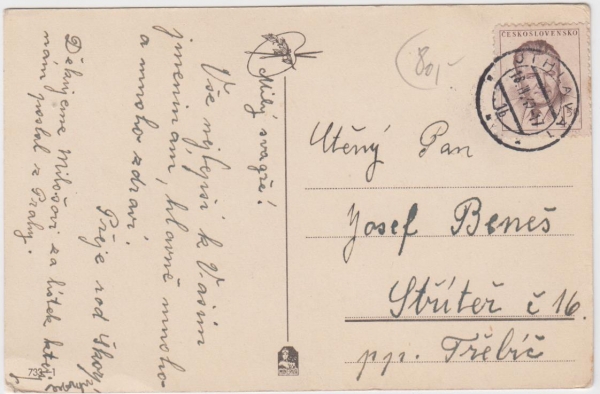 Milý svagře!
Vše nejlepší k Vašim
jmeninám, hlavně mnoho
a mnoho zdraví.
Přeje rod.
Děkujeme Milošovi za lístek který
nám poslal z Prahy.
80,-
ČESKOSLOVENSKO
JIHLAVA
Ctěný Pan
Josef Beneš
Stříteř č 16.
pp. Třebíč